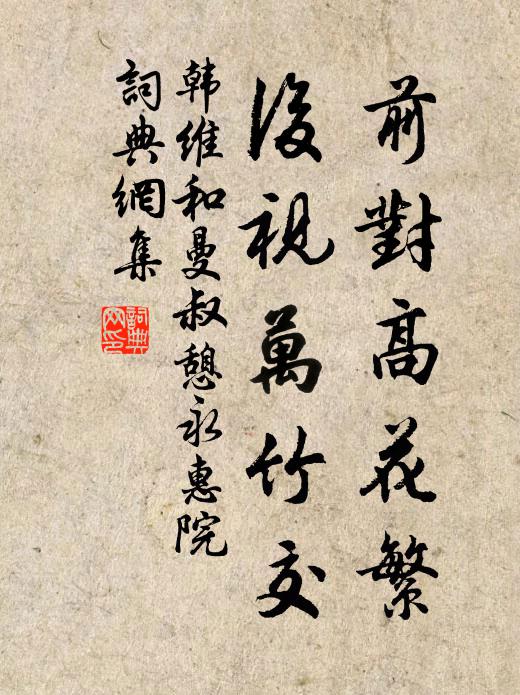 前對高花繁
後視萬竹交
韩維和曼叔憩永惠院
詞典網集
詞典网印